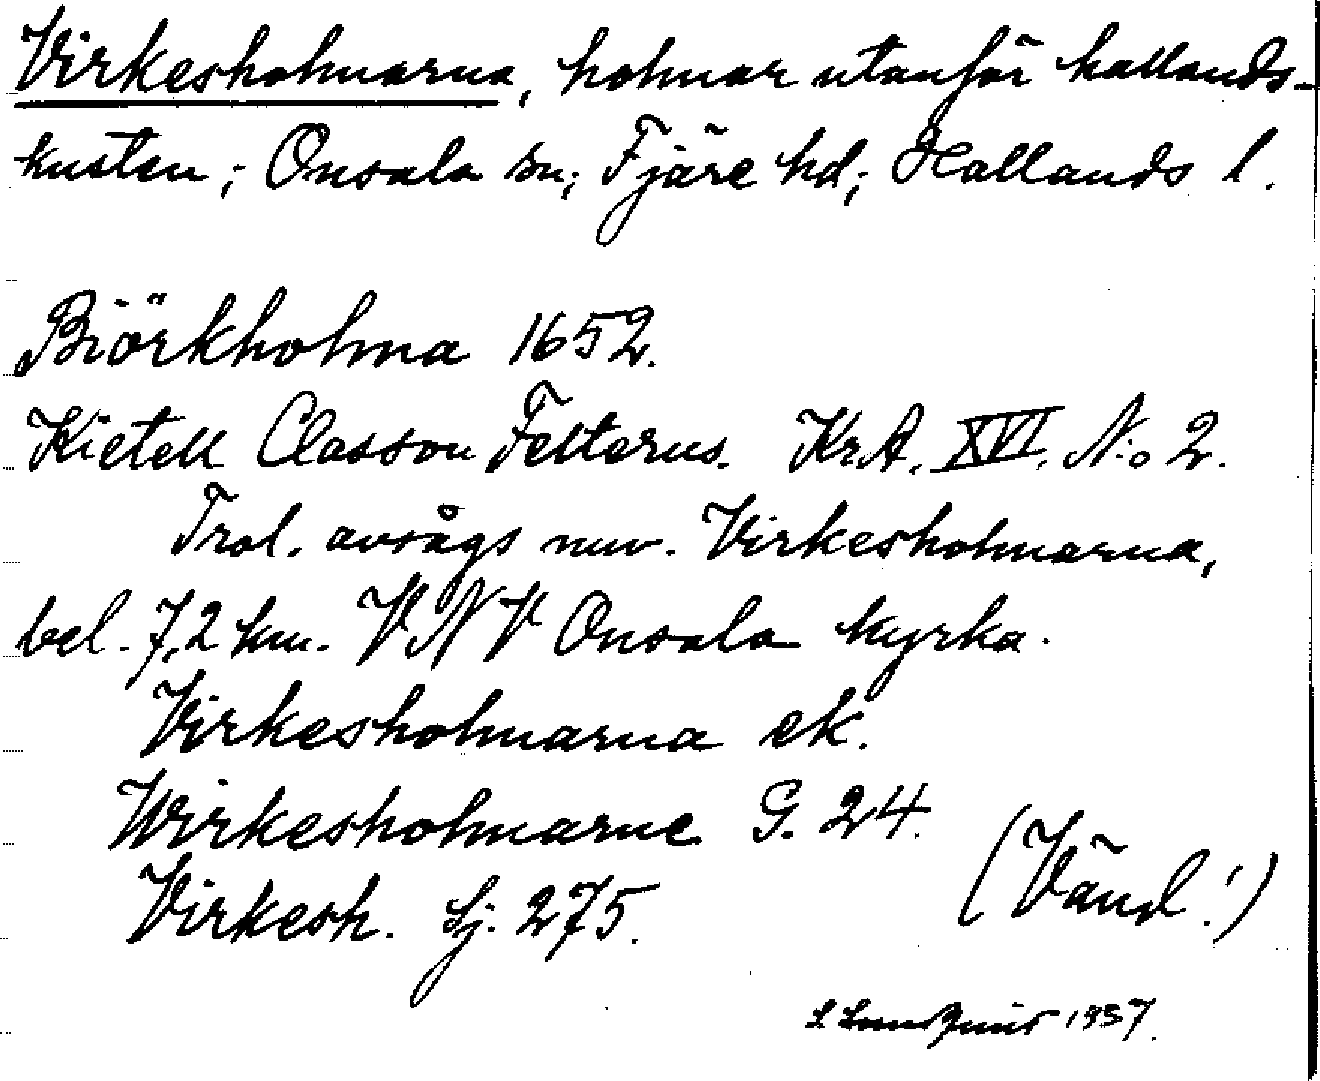 Virkesholmarna, holmar utanför hallands-
kusten; Onsala sn; Fjäre hd; Hallands l.
Biörkholma 1652.
Kietell Classon Felterus. Kr.A. XVI. N:o 2.
Trol. avsågs nuv. Virkesholmarna,
bel. 7,2 km. VNV Onsala kyrka.
Virkesholmarna ek.
Wirkesholmarne G. 24.
Virkesh. Sj. 275.
(Vänd!)
S Lundquist 1937.